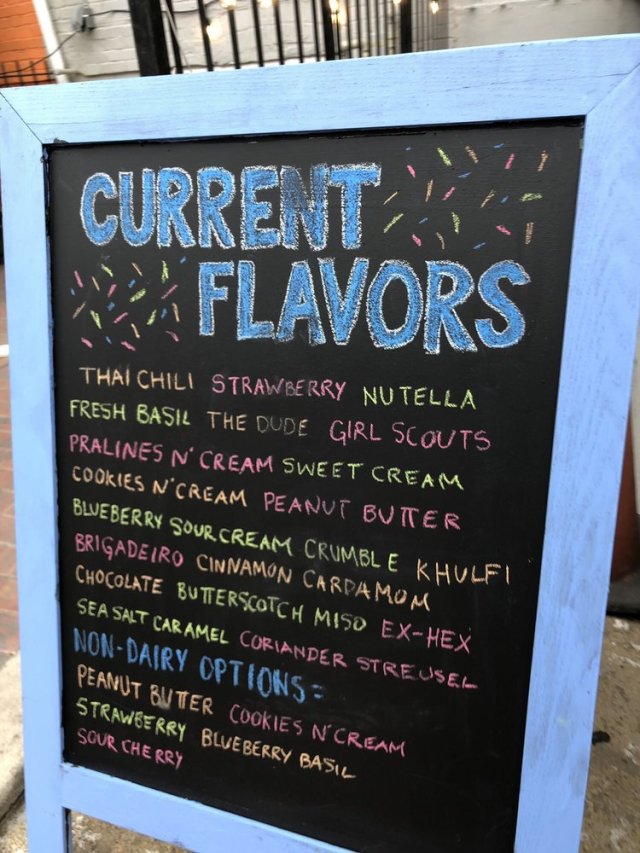 CURRENT
FLAVORS
THAI CHILI STRAWBERRY NUTELLA
FRESH BASIL THE DUDE GIRL SCOUTS
PRALINES N' CREAM SWEET CREAM
COOKIES N'CREAM PEANUT BUTTER
BLUEBERRY SOUR CREAM CRUMBLE KHULFI
BRIGADEIRO CINNAMON CARDAMOM
CHOCOLATE BUTTERSCOTCH MISO EX-HEX
SEA SALT CARAMEL CORIANDER STREUSEL
NON-DAIRY OPTIONS:
PEANUT BUTTER COOKIES N'CREAM
STRAWBERRY BLUEBERRY BASIL
SOUR CHERRY